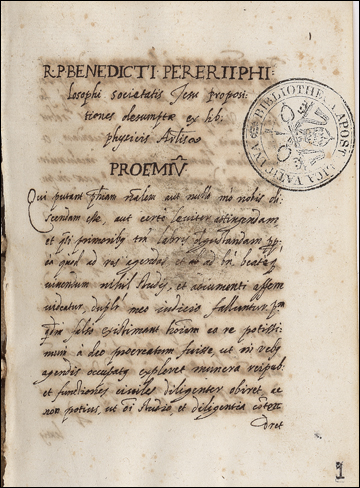 R. P. BENEDICTI PERERII PHI:
losophi societatis Jesu proposi:
tiones desumptæ ex lib.
physicis Aristo.
PROEMIŪ
Qui putant phiam nalem aut nullo mo nobis di
scendam esse, aut certe leviter attingendam
et primoribus tm labris degustandam
ea quod ad res agendas et ad
vivendum nihil studij, et adiumenti afferre
videatur, dupli meo iudicio falluntur
falso existimant hoiem eo re potissi
mum a deo procreatum fuisse, ut in reb9
agendis occupatus expleret munera reipub.
et functiones civiles diligenter obiret, ac
non potius, ut oi studio, et diligentia
dret
BIBLIOTHECA APOSTOLICA VATICANA
1